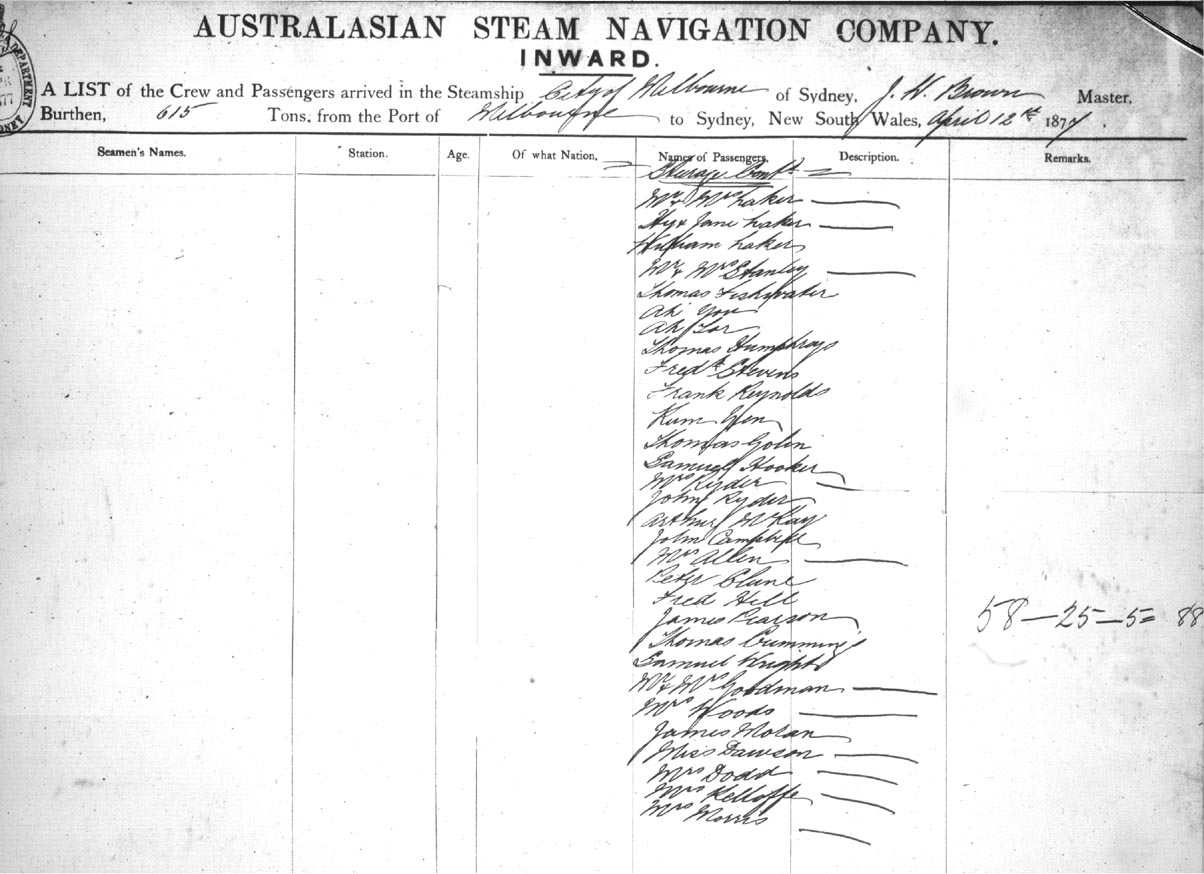 AUSTRALASIAN STEAM NAVIGATION COMPANY.
INWARD.
A LIST of the Crew and Passengers arrived in the Steamship City of Melbourne of Sydney, J. H. Brown Master,
Burthen, 615 Tons, from the Port of Melbourne to Sydney, New South Wales, April 12th 1877.
Seamen's Names. Station. Age. Of what Nation, Names of Passengers, Description. Remarks.
Steerage Contd
Mr & Mrs Laker
Hy & Jane Laker
William Laker
Mr & Mrs Stanley
Thomas Fishwater
Ah You
Ah Tor
Thomas Humphrays
Fredk Stevens
Frank Reynolds
Kum Yen
Thomas Golin
Samuel Hooker
Mrs Ryder
John Ryder
Arthur McKay
John Campbell
Mrs Allen
Peter Clune
Fred Hill
James Pearson
58-25-5= 88
Thomas Cummings
Samuel Wright
Mr & Mrs Goodman
Mrs Woods
James Molan
Miss Dawson
Mrs Dodd
Mrs Kelloffe
Mrs Morris